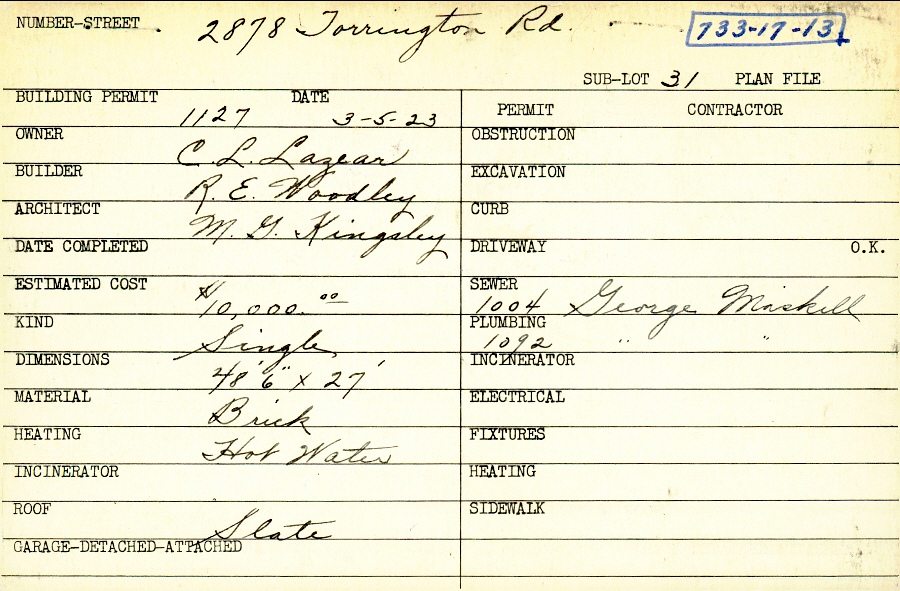 NUMBER-STREET 2878 Torrington Rd. 733-17-13
SUB-LOT 31 PLAN FILE
BUILDING PERMIT 1127 DATE 3-5-23
OWNER C. L. Lazear
BUILDER R. E. Woodley
ARCHITECT M. G. Kingsley
DATE COMPLETED
ESTIMATED COST $10,000.00
KIND Single
DIMENSIONS 48'6" x 27'
MATERIAL Brick
HEATING Hot Water
INCINERATOR
ROOF Slate
GARAGE-DETACHED-ATTACHED
PERMIT CONTRACTOR
OBSTRUCTION
EXCAVATION
CURB
DRIVEWAY O.K.
SEWER 1004 George Maskell
PLUMBING 1092 " "
INCINERATOR
ELECTRICAL
FIXTURES
HEATING
SIDEWALK